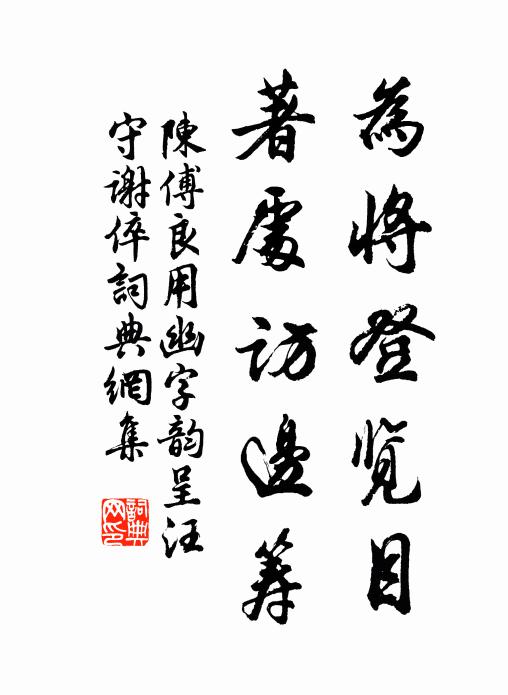 為將登覽目
著處訪邊筹
陳傅良用幽字韵呈汪
守謝倅詞典網集
詞典
网印